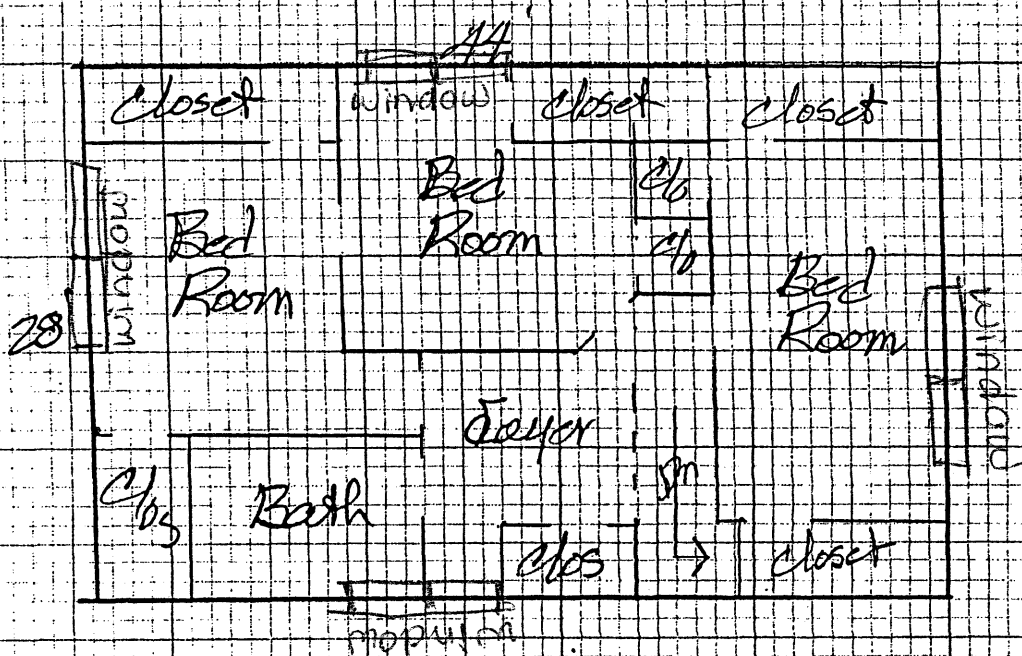 44
Closet
window
Closet
Closet
window
Bed
Room
Bed
Room
Clo
Clo
Bed
Room
28
window
Foyer
Dn
Clos
Bath
Clos
Closet
window